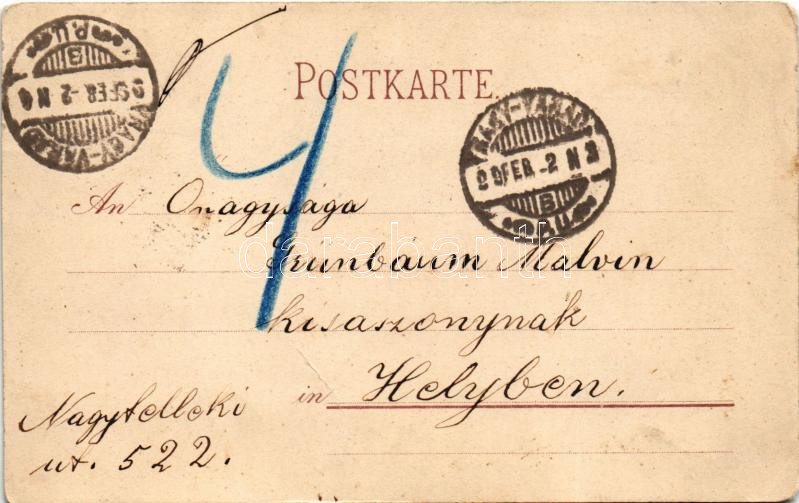 POSTKARTE.
NAGY-VÁRAD
99 FEB. -2 N 4
B
P.U.
NAGY-VÁRAD
99 FEB. -2 N 3
B
P.U.
4
An Onagysága
Grünbaum Malvin
kisaszonynak
in Helyben.
Nagytelleki
ut. 522.
darabanth